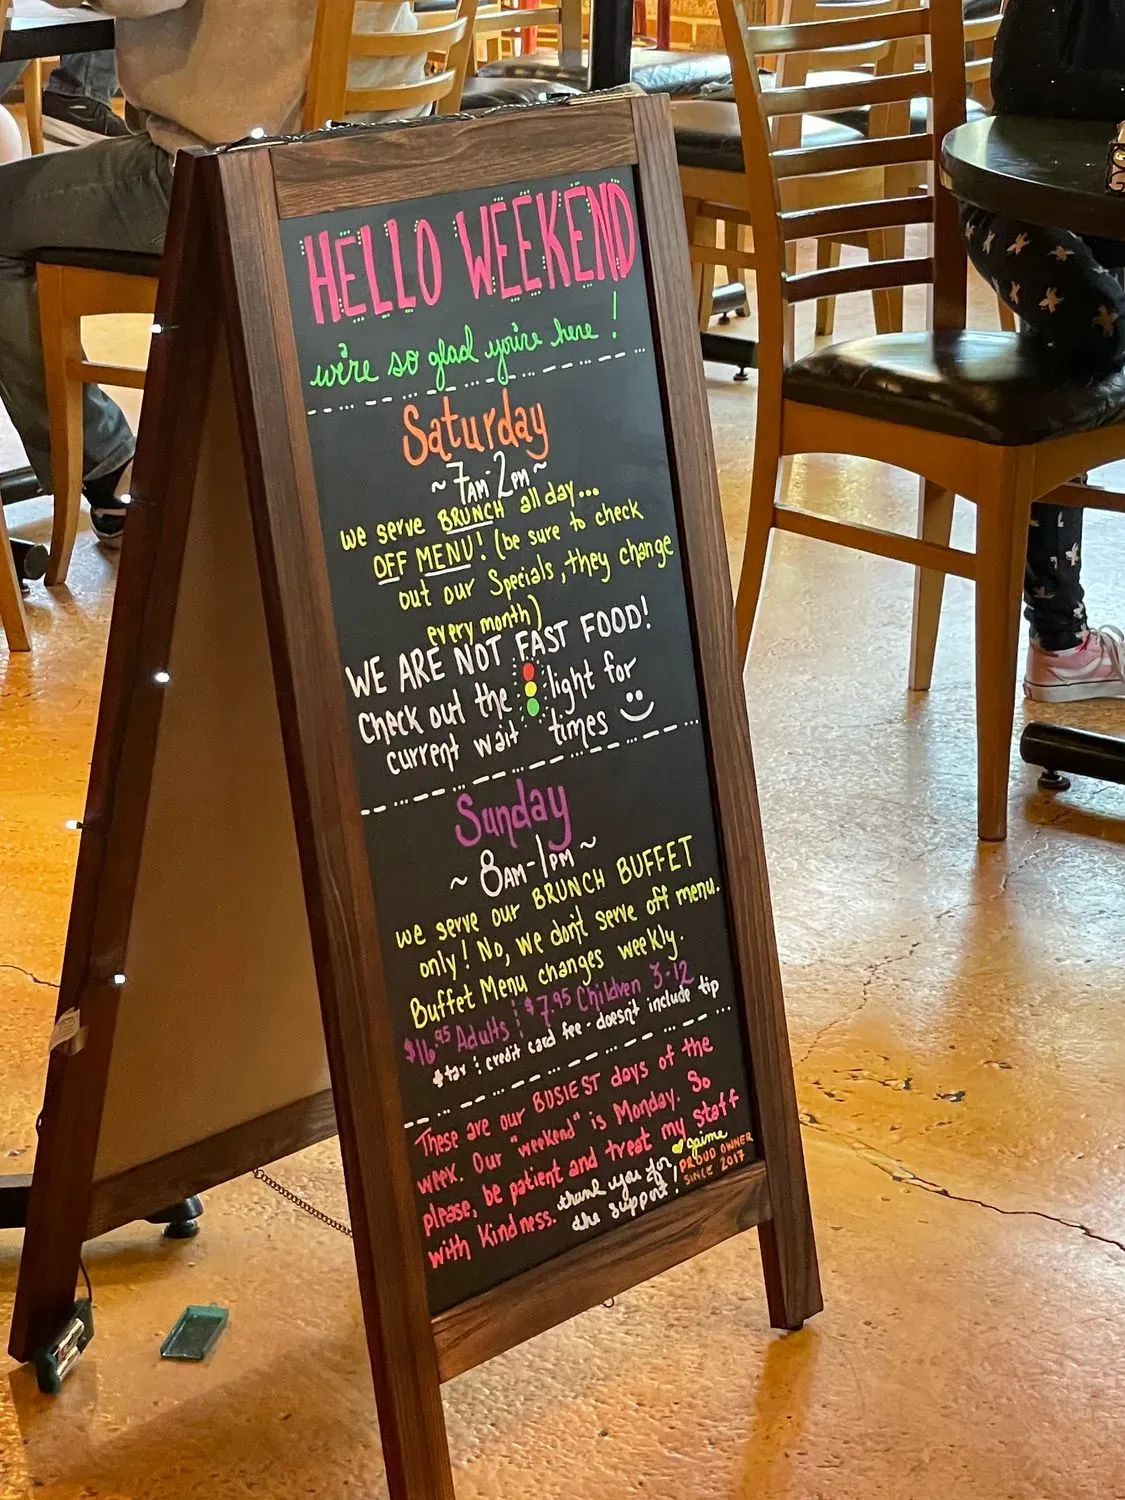 HELLO WEEKEND
we're so glad you're here!
Saturday
~ 7AM-2PM ~
we serve BRUNCH all day...
OFF MENU! (be sure to check
out our Specials, they change
every month)
WE ARE NOT FAST FOOD!
Check out the light for
current wait times
Sunday
~ 8AM-1PM ~
we serve our BRUNCH BUFFET
only! No, we don't serve off menu.
Buffet Menu changes weekly.
$16.95 Adults $7.95 Children 3-12
+tax + credit card fee - doesn't include tip
These are our BUSIEST days of the
week. Our "weekend" is Monday. So
please, be patient and treat my staff
with kindness. thank you for
the support!
Jaime
PROUD OWNER
SINCE 2017